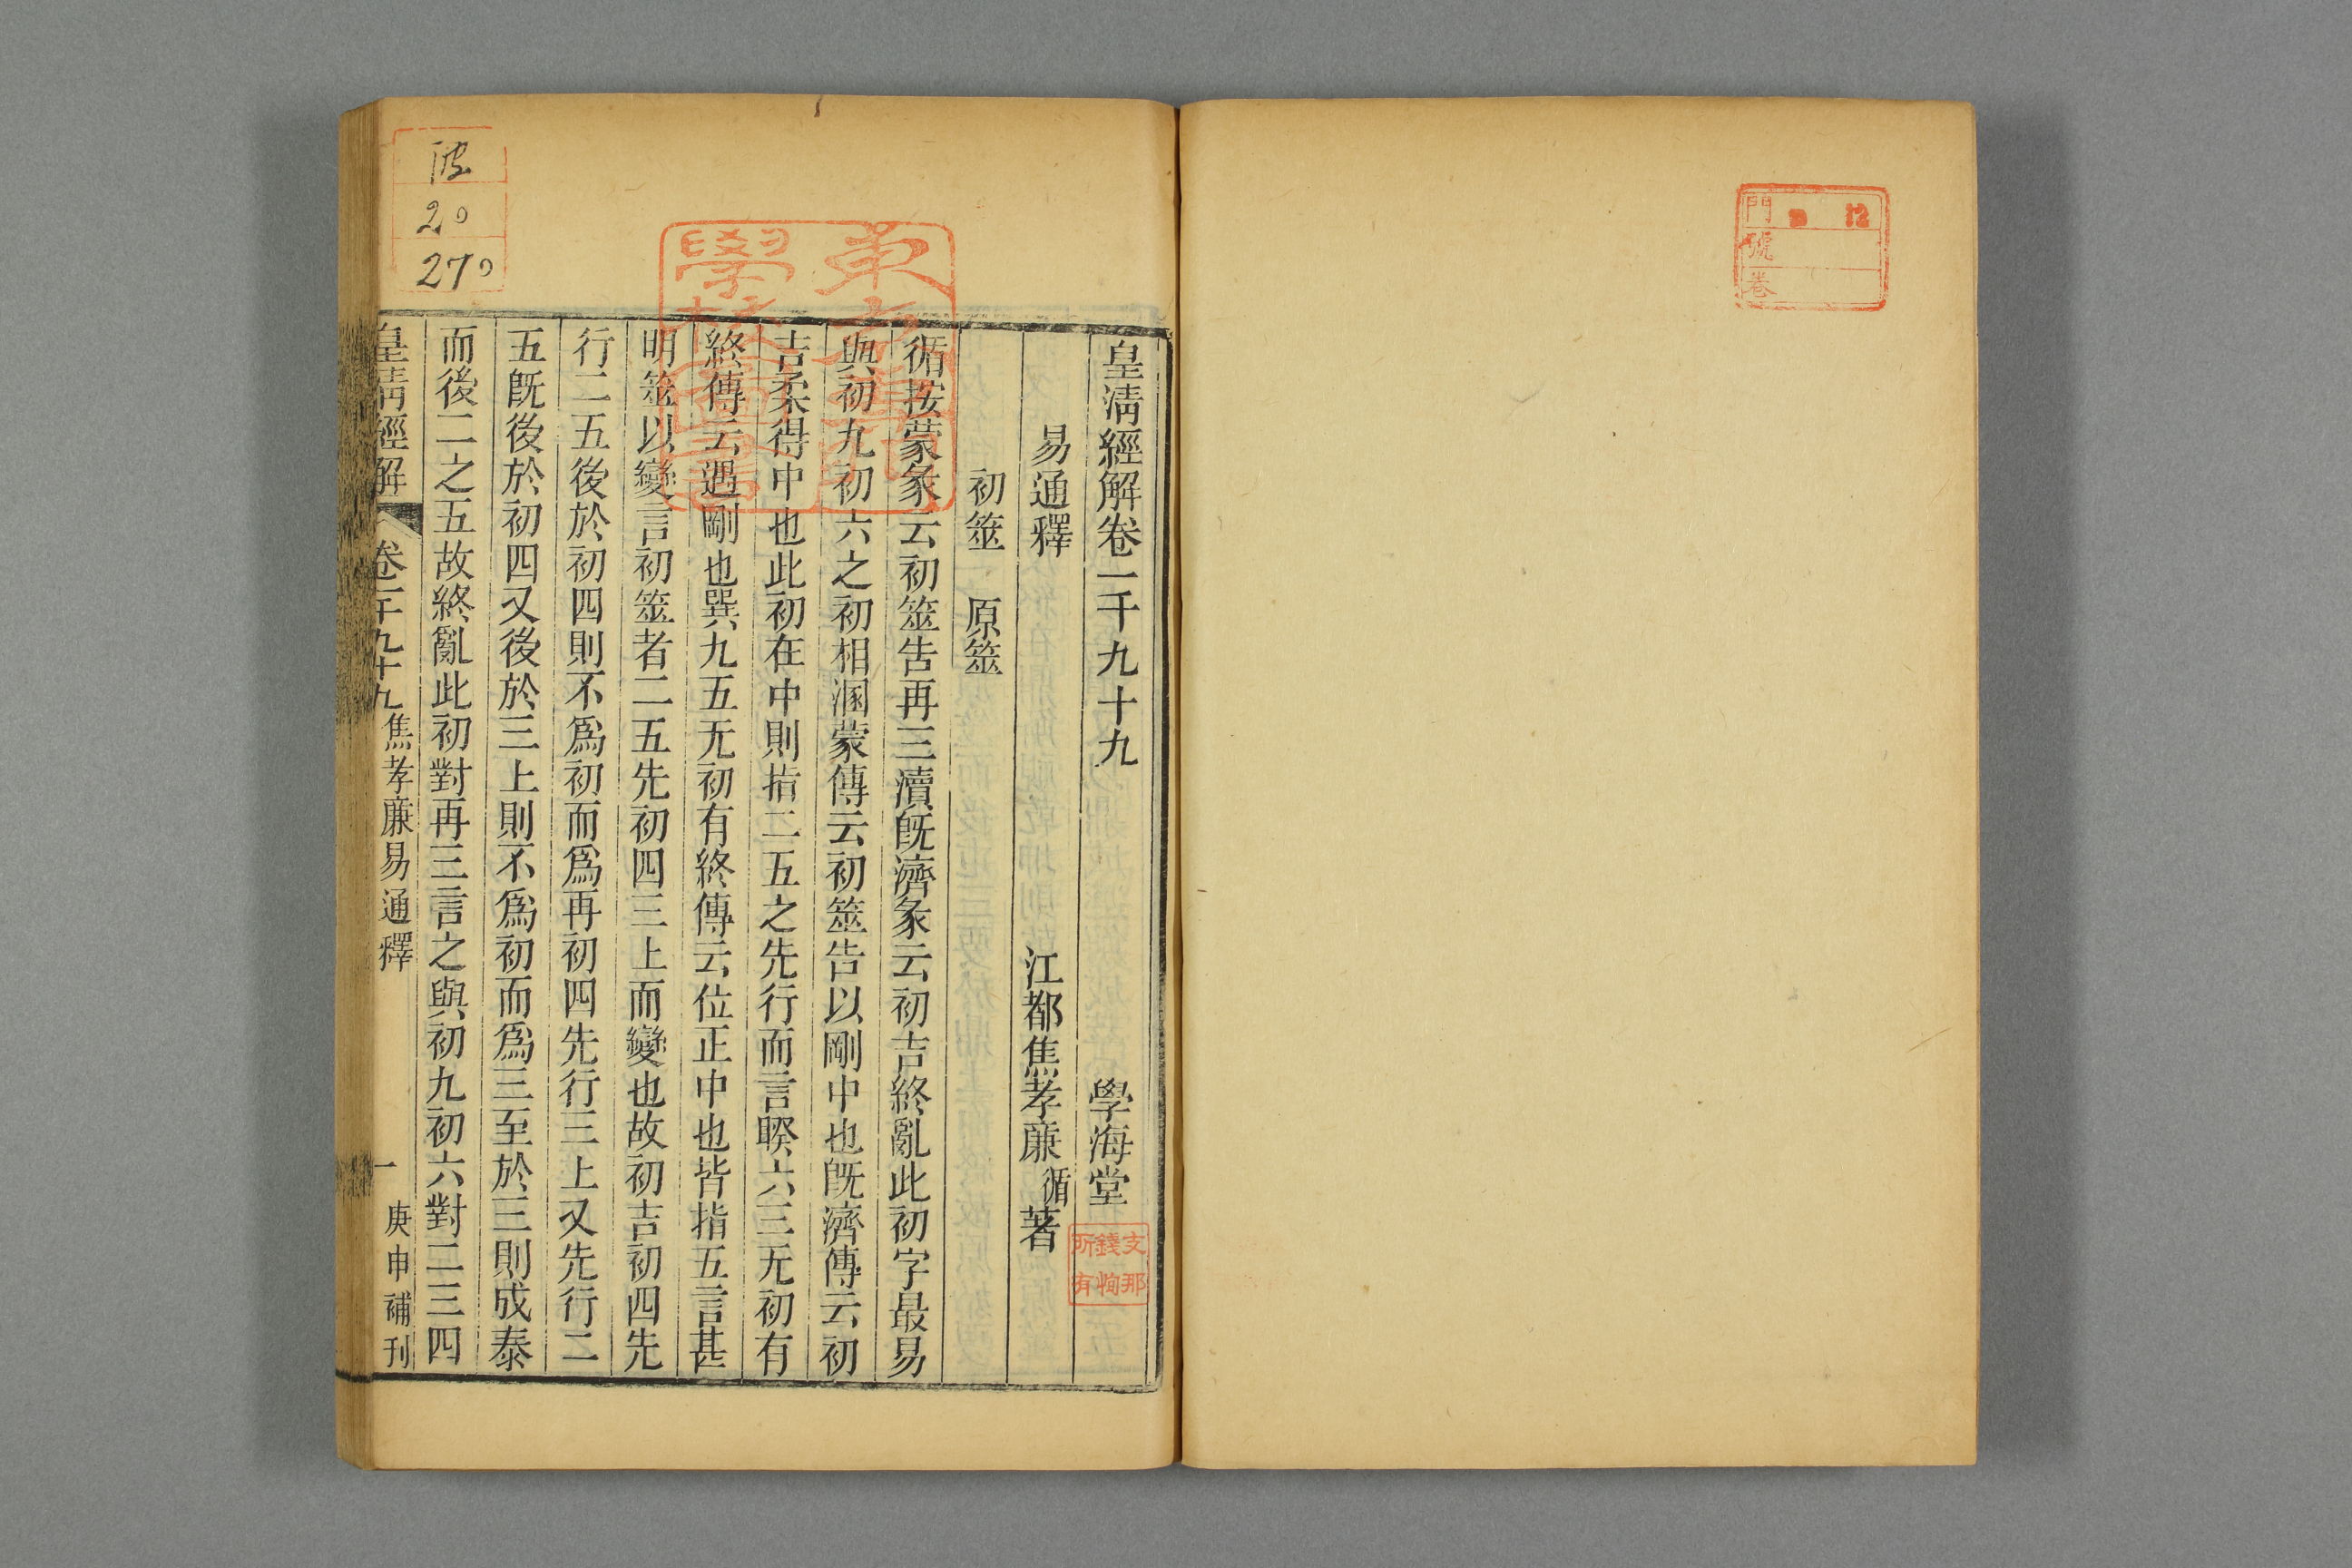 門 12
號
卷
皇清經解卷一千九十九 學海堂
易通釋 江都焦孝廉循著
初筮 原筮
循按蒙彖云初筮告再三瀆旣濟彖云初吉終亂此初字最易
與初九初六之初相溷蒙傳云初筮告以剛中也旣濟傳云初
吉柔得中也此初在中則指二五之先行而言睽六三无初有
終傳云遇剛也巽九五无初有終傳云位正中也皆指五言甚
明筮以變言初筮者二五先初四三上而變也故初吉初四先
行二五後於初四則不爲初而爲再初四先行三上又先行二
五旣後於初四又後於三上則不爲初而爲三至於三則成泰
而後二之五故終亂此初對再三言之與初九初六對二三四
皇清經解 卷一千九十九 焦孝廉易通釋 一 庚申補刊
支那
錢恂
所有
20
270